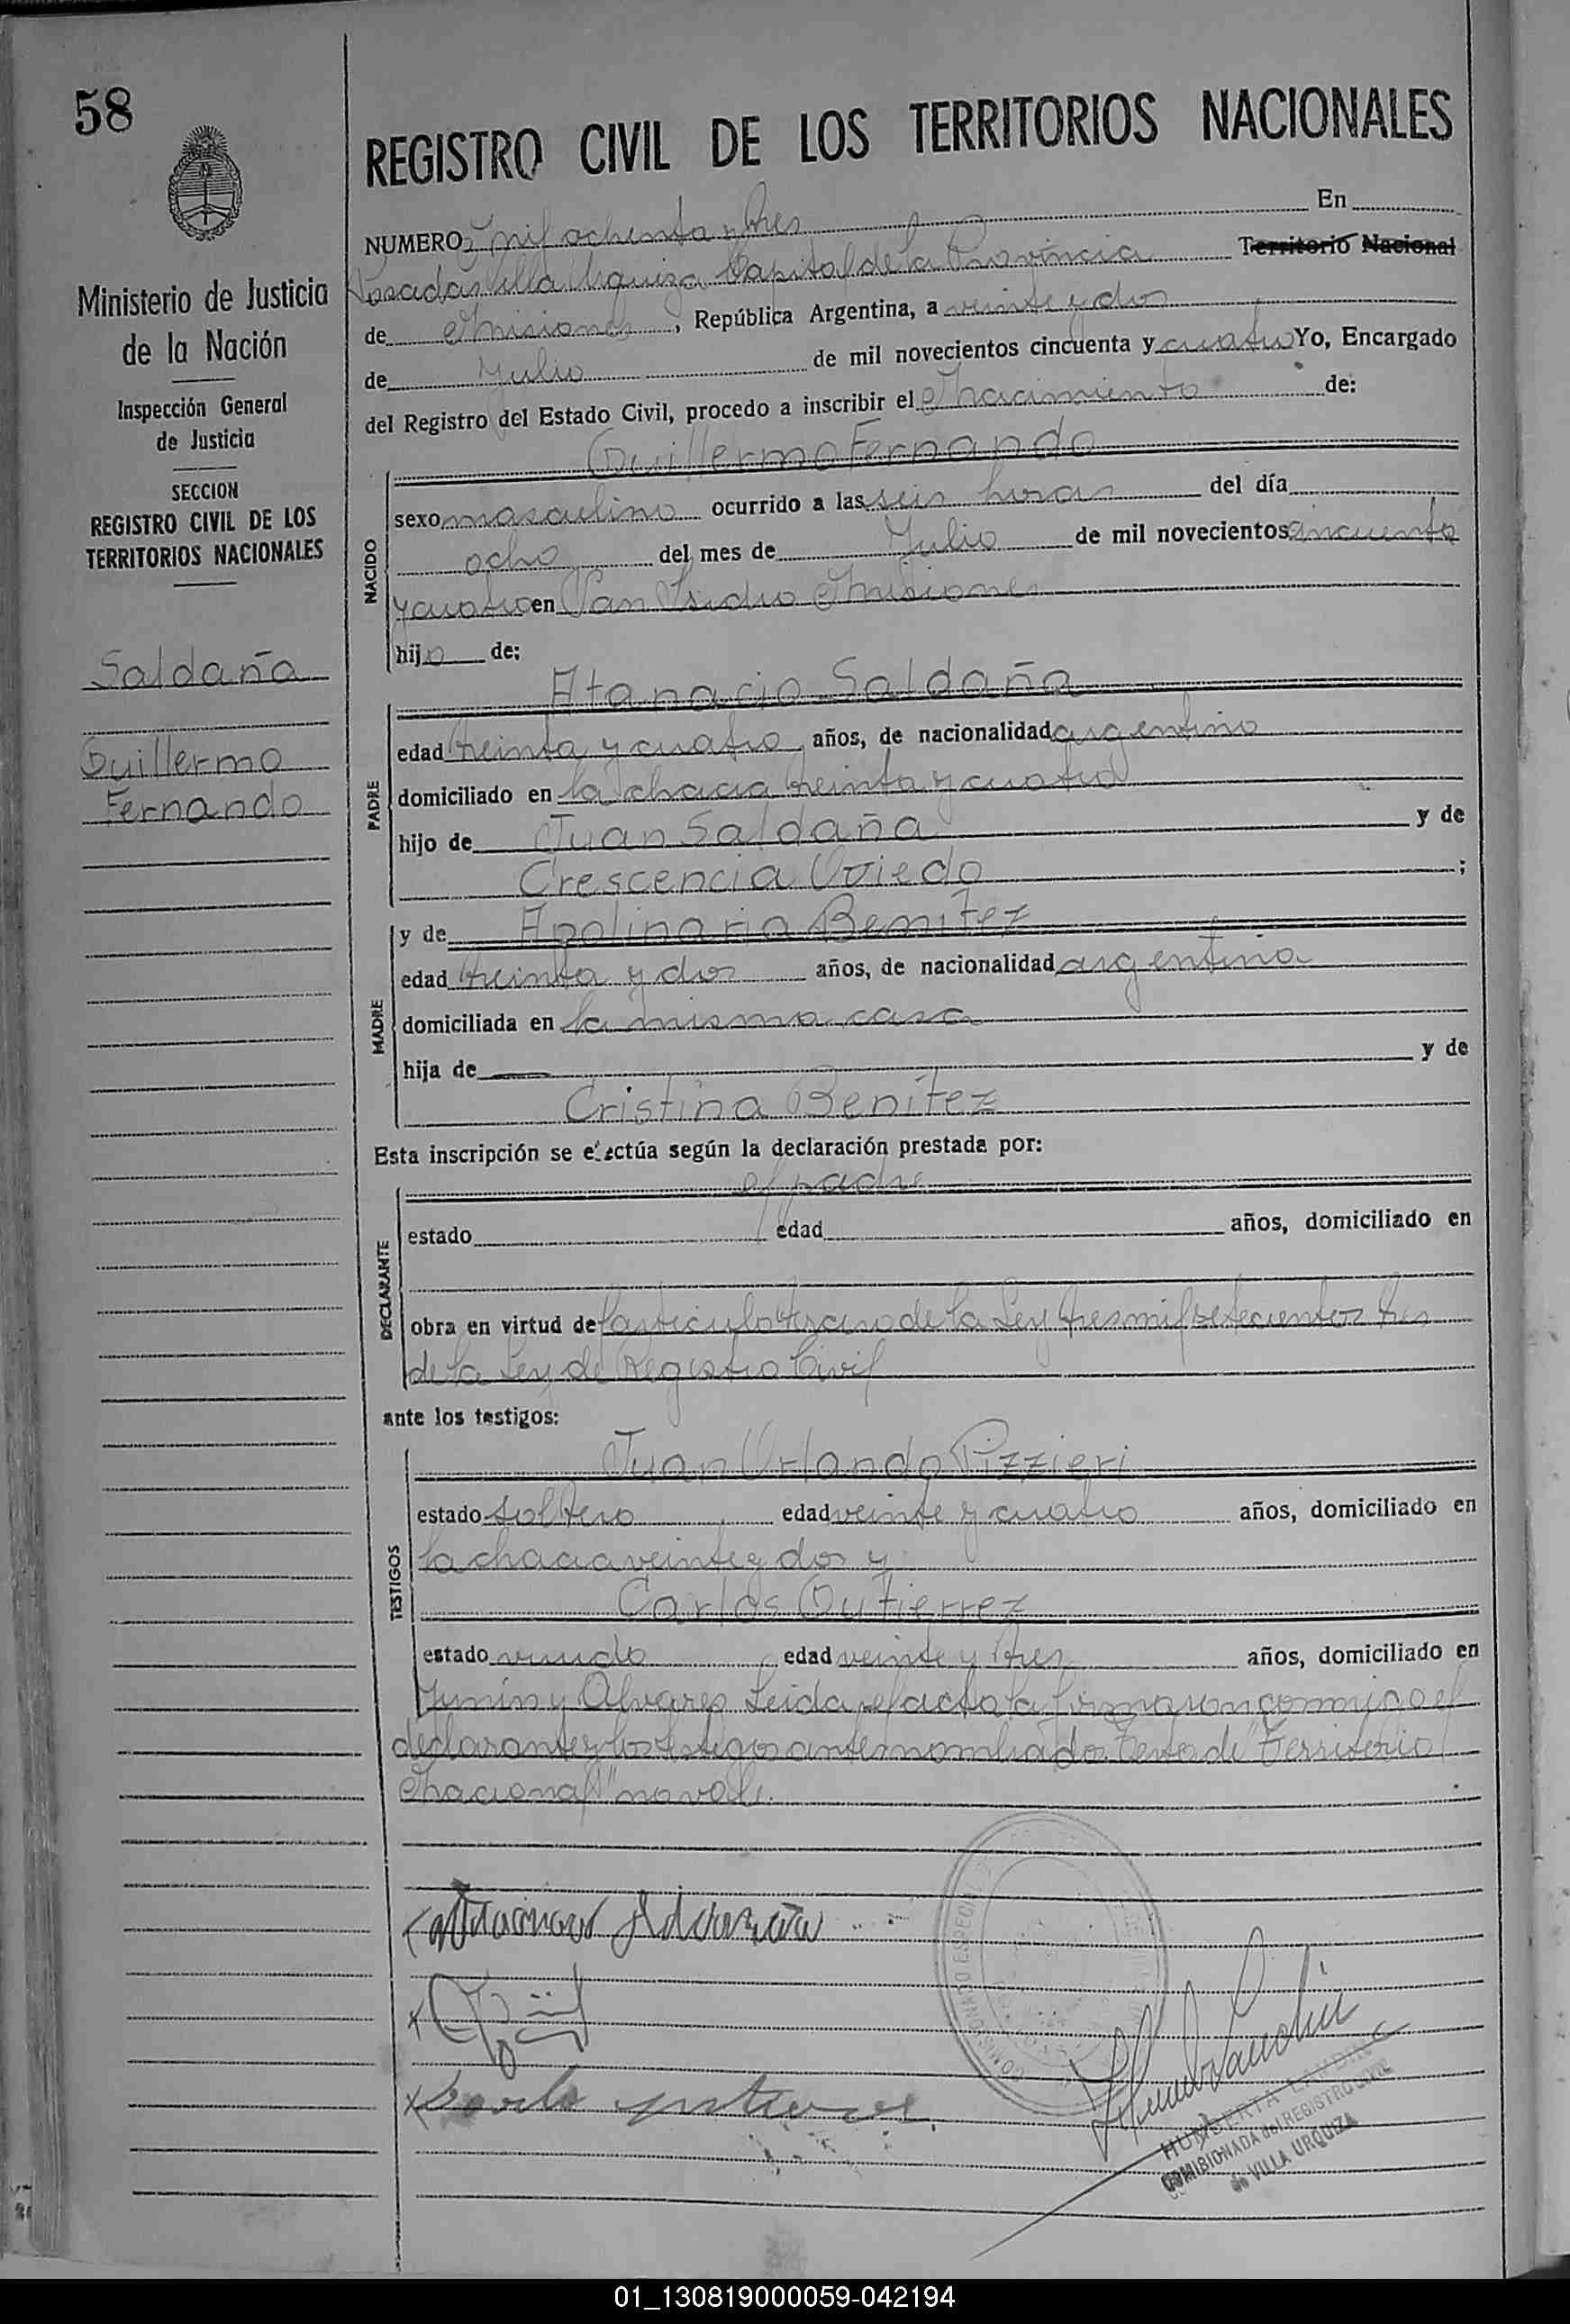 58
Ministerio de Justicia
de la Nación
Inspección General
de Justicia
SECCION
REGISTRO CIVIL DE LOS
TERRITORIOS NACIONALES
Saldaña
Guillermo
Fernando
REGISTRO CIVIL DE LOS TERRITORIOS NACIONALES
NUMERO mil ochenta y tres En
Posadas Villa Urquiza Capital de la Provincia Territorio Nacional
de Misiones, República Argentina, a veinte y dos
de Julio de mil novecientos cincuenta y cuatro Yo, Encargado
del Registro del Estado Civil, procedo a inscribir el Nacimiento de:
Guillermo Fernando
NACIDO
sexo masculino ocurrido a las seis horas del día
ocho del mes de Julio de mil novecientos cincuenta
y cuatro en San Isidro Misiones
hijo de:
Atanacio Saldaña
PADRE
edad treinta y cuatro años, de nacionalidad argentino
domiciliado en la chacra treinta y cuatro
hijo de Juan Saldaña y de
Crescencia Oviedo ;
y de Apolinaria Benitez
MADRE
edad treinta y dos años, de nacionalidad argentina
domiciliada en la misma casa
hija de y de
Cristina Benítez
Esta inscripción se efectúa según la declaración prestada por:
el padre
DECLARANTE
estado edad años, domiciliado en
obra en virtud del articulo tercero de la Ley tres mil setecientos tres
de la Ley de Registro Civil
ante los testigos:
Juan Orlando Pizzieri
TESTIGOS
estado soltero edad veinte y cuatro años, domiciliado en
la chacra veinte y dos y
Carlos Gutierrez
estado viudo edad veinte y tres años, domiciliado en
Junin y Alvares Leida el acta la firmaron conmigo el
declarante y los testigos antes nombrados Testado "Territorio
Nacional" no vale.
COMISIONADO ESPECIAL
HUMBERTA LANDINI
COMISIONADA del REGISTRO CIVIL
de VILLA URQUIZA
01_130819000059-042194